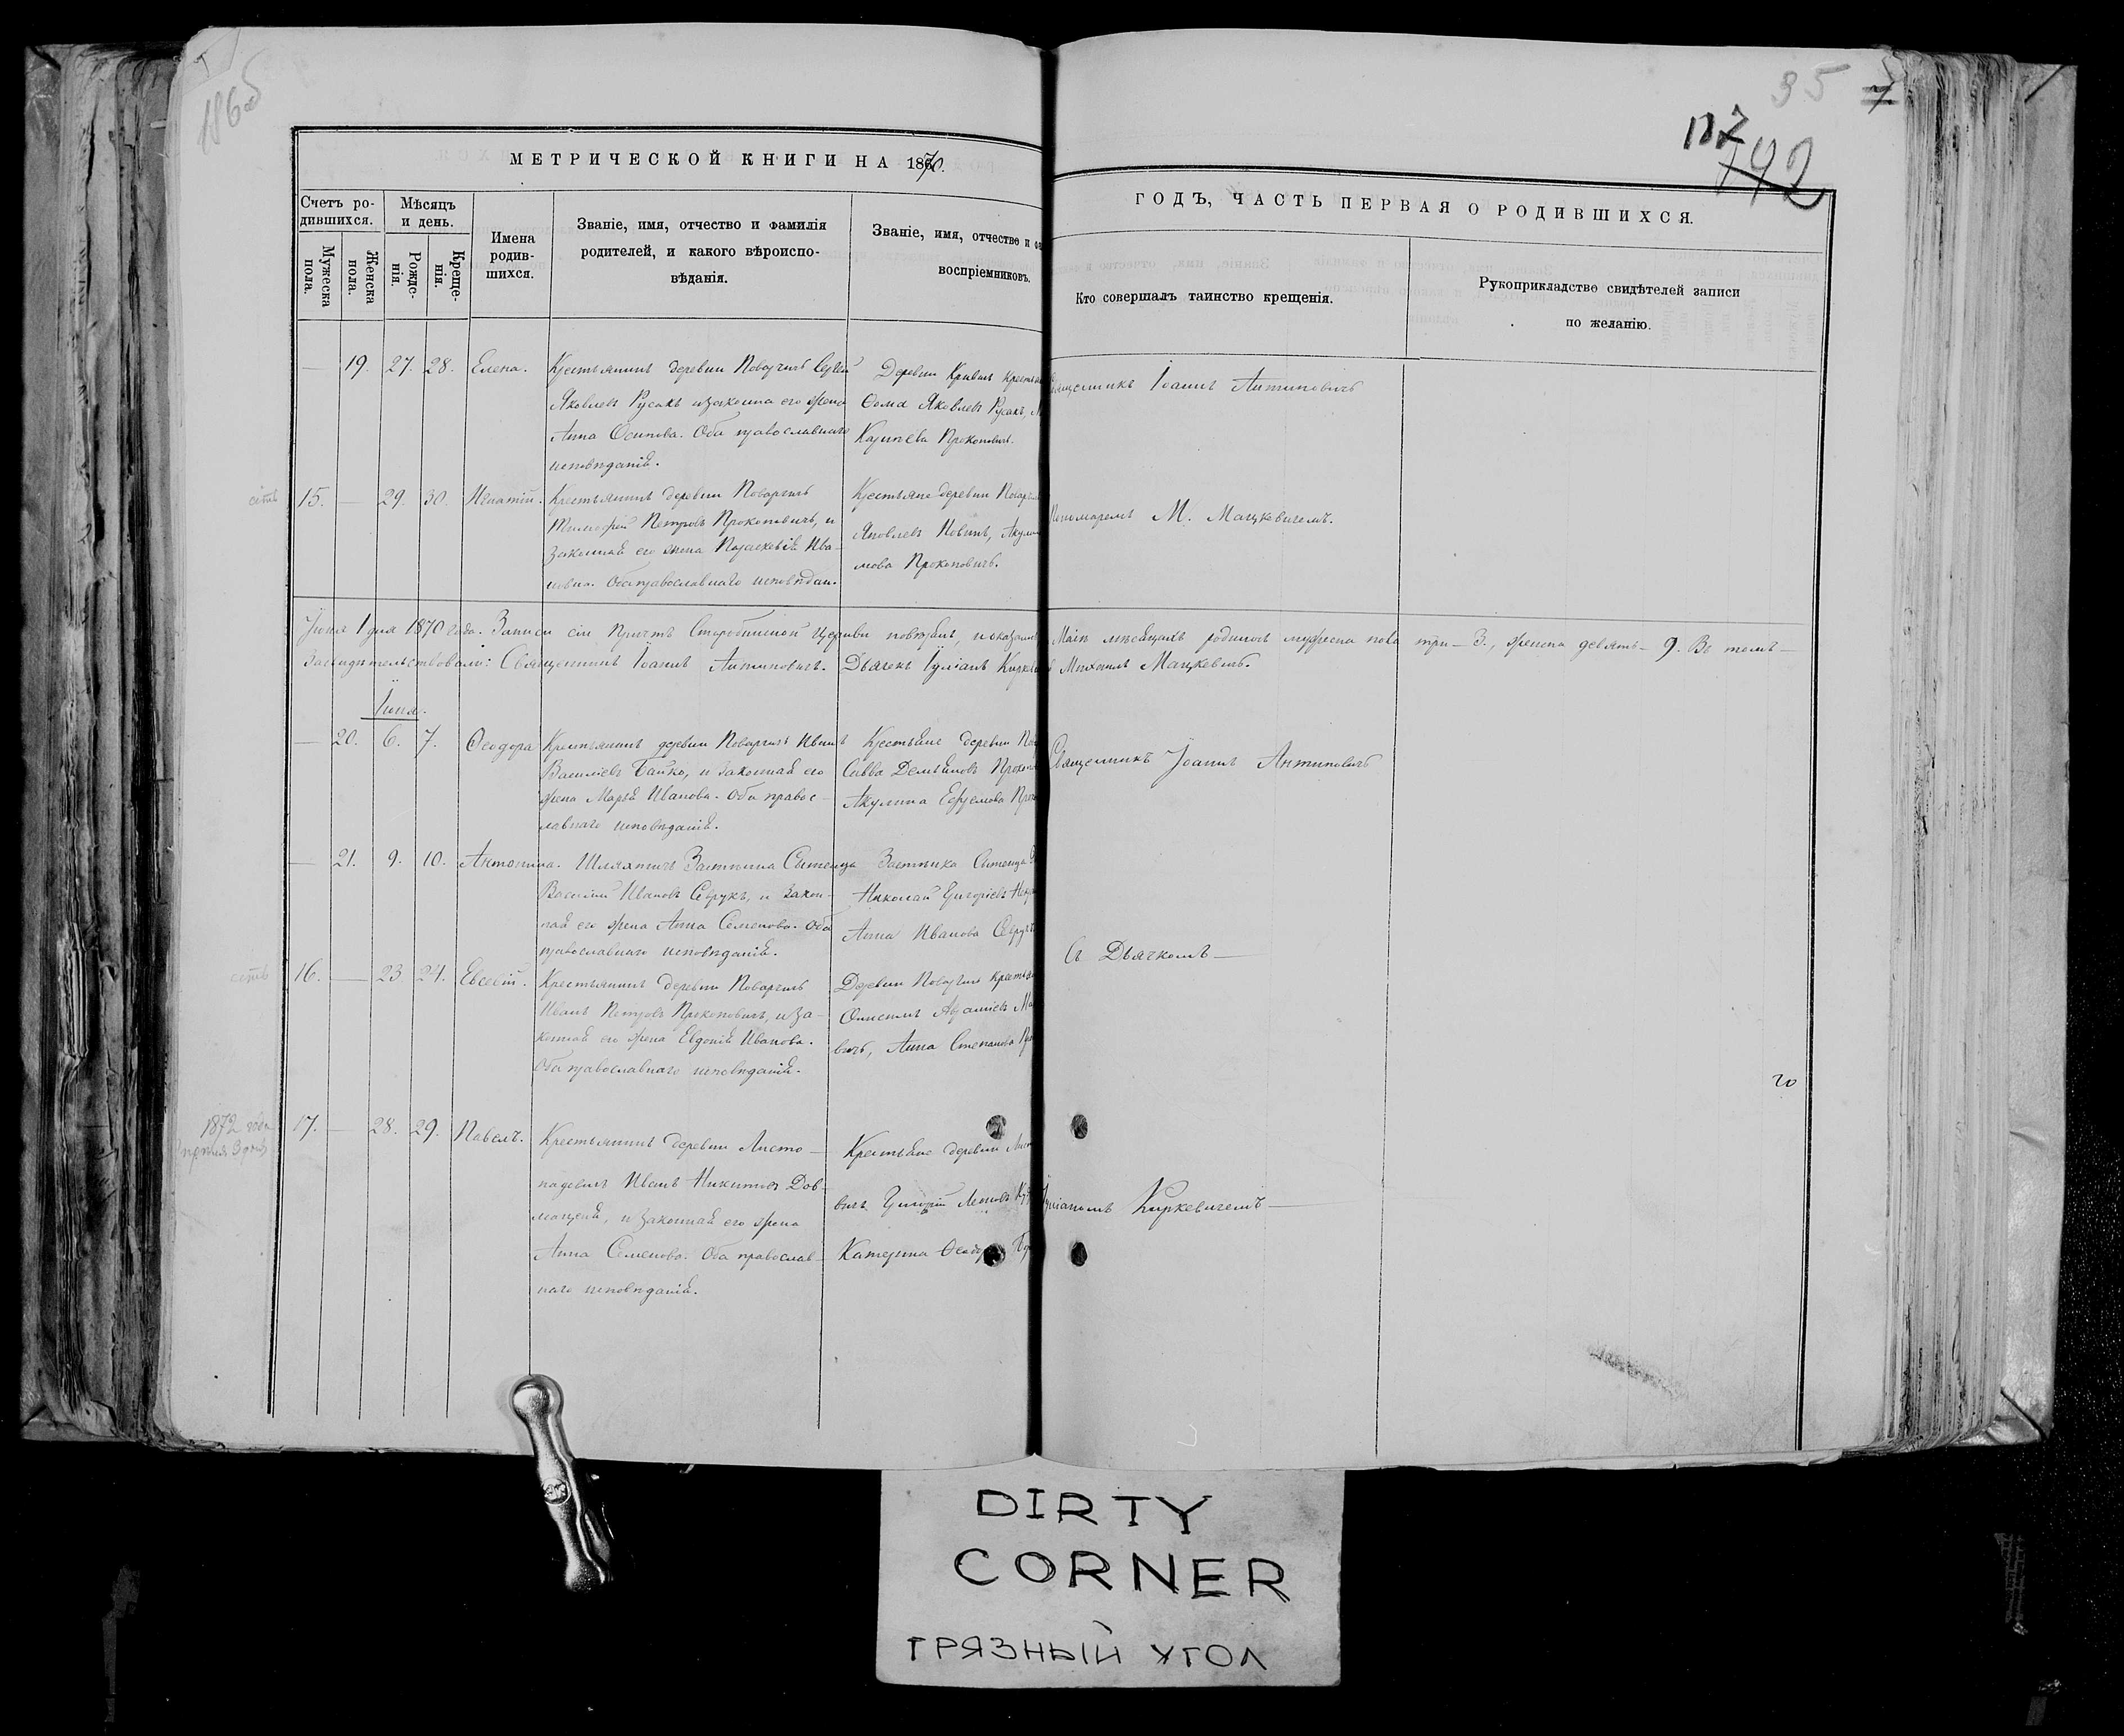 1865
35
7
117
192
МЕТРИЧЕСКОЙ КНИГИ НА 1870.
ГОДЪ, ЧАСТЬ ПЕРВАЯ О РОДИВШИХСЯ.
Счетъ ро-
дившихся.
Мужеска
пола.
Женска
пола.
Мѣсяцъ
и день.
Рожде-
нія.
Креще-
нія.
Имена
родив-
шихся.
Званіе, имя, отчество и фамилія
родителей, и какого вѣроиспо-
вѣданія.
Званіе, имя, отчество и
воспріемниковъ.
Кто совершалъ таинство крещенія.
Рукоприкладство свидѣтелей записи
по желанію.
— 19. 27. 28. Елена.
Крестьянинъ деревни Поварчичъ Сергѣй
Яковлевъ Русакъ и законна его жена
Анна Осипова. Оба православнаго
исповѣданія.
Деревни Кривичъ
Ѳома Яковлевъ Русакъ,
Прокоповичъ.
Іоаннъ Антиповичъ
15. — 29. 30. Игнатій.
Крестьянинъ деревни Поварчичъ
Тимофей Петровъ Прокоповичъ, и
законная его жена Параскевія Ива-
нова. Оба православнаго исповѣдан.
Крестьяне деревни
Яковлевъ Новикъ,
мова Прокоповичъ.
Пономаремъ М. Мацкевичемъ.
Іюня 1 дня 1870 года. Записи сіи Причтъ Старобинской Церкви повѣрялъ, и оказалось
Маіѣ мѣсяцахъ родилось мужеска пола три — 3., женска девять — 9. Въ томъ —
Засвидѣтельствовали: Священникъ Іоаннъ Антиповичъ. Дьячекъ Іуліанъ
Михаилъ Мацкевичъ.
Іюня.
— 20. 6. 7. Ѳеодора
Крестьянинъ деревни Поварчичъ Иванъ
Василіевъ Байко, и законная его
жена Марья Иванова. Оба правос-
лавнаго исповѣданія.
Крестьяне деревни
Савва Демьяновъ
Акулина Ефремова
Священникъ Іоаннъ Антиповичъ
— 21. 9. 10. Антонина.
Шляхтичъ Застѣнка Сытенца
Василій Ивановъ Севрукъ, и закон-
ная его жена Анна Семенова. Оба
православнаго исповѣданія.
Застѣнка Сытенца
Николай Григоріевъ
Анна Иванова
Съ Дьячкомъ —
16. — 23. 24. Евсевій.
Крестьянинъ деревни Поварчичъ
Иванъ Петровъ Прокоповичъ, и за-
конная его жена Евдокія Иванова.
Оба православнаго исповѣданія.
Деревни Поварчичъ
Онисимъ
вичъ, Анна Степанова
20
1872 года
17. — 28. 29. Павелъ.
Крестьянинъ деревни Листо-
падовичъ Иванъ Никитинъ Дов-
, и законная его жена
Анна Семенова. Оба православ-
наго исповѣданія.
Крестьяне деревни
вичъ Григорій Леоновъ
Катерина
Іуліаномъ Киркевичемъ —
DIRTY
CORNER
ГРЯЗНЫЙ УГОЛ